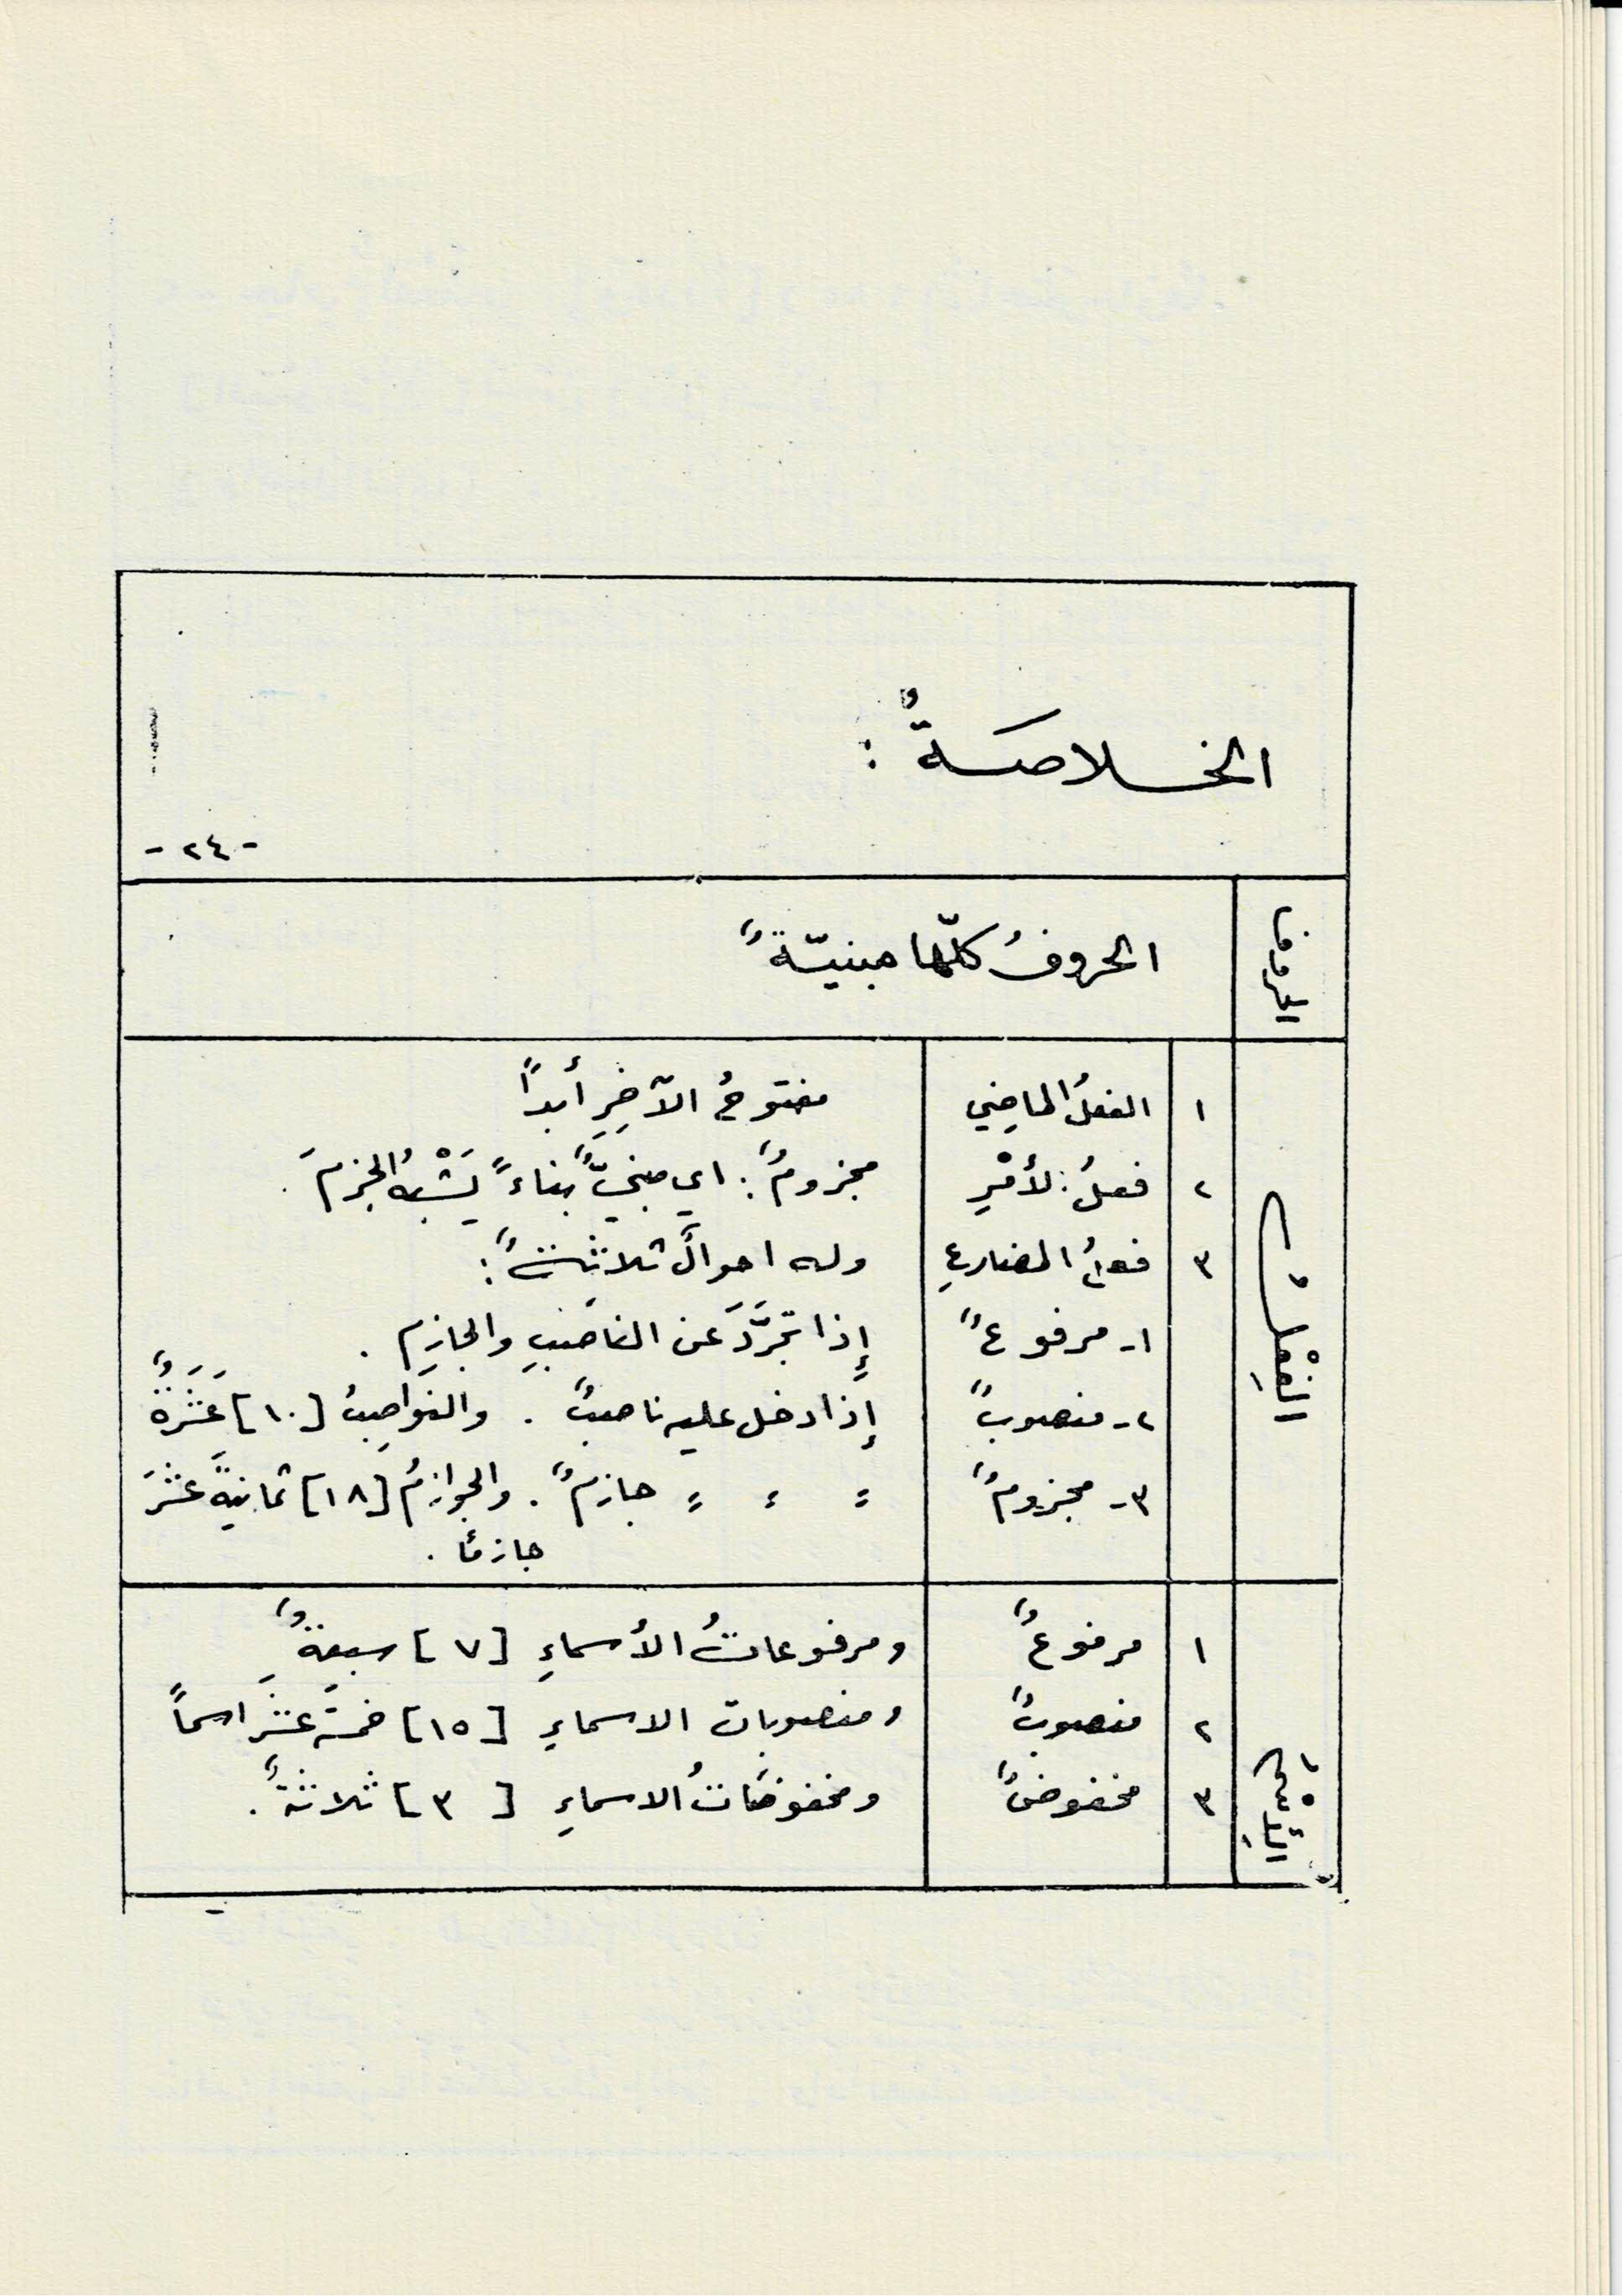 الخلاصَةُ :
- ٢٤ -
الحروف
الحروفُ كلّها مبنيّةٌ
الفِعْلُ
١ الفعلُ الماضِي مفتوحُ الآخِرِ أبداً
٢ فعلُ الأمْرِ مجزومٌ : اي مبنيٌّ بناءً يَشْبِهُ الجزمَ .
٣ فعلُ المضارعِ وله احوالٌ ثلاثةٌ :
١- مرفوعٌ إِذا تجرَّدَ عن الناصبِ والجازِمِ .
٢- منصوبٌ إِذا دخل عليه ناصبٌ . والنواصِبُ [١٠] عَشَرَةٌ
٣- مجزومٌ = = = جازمٌ . والجوازمُ [١٨] ثمانيةَ عشَرَ
جازمًا .
الأِسْمُ
١ مرفوعٌ ومرفوعاتُ الأسماءِ [٧] سبعةٌ
٢ منصوبٌ ومنصوبات الاسماءِ [١٥] خمسةَ عشَر اسماً
٣ مخفوضٌ ومخفوضَاتُ الاسماءِ [٣] ثلاثةٌ .